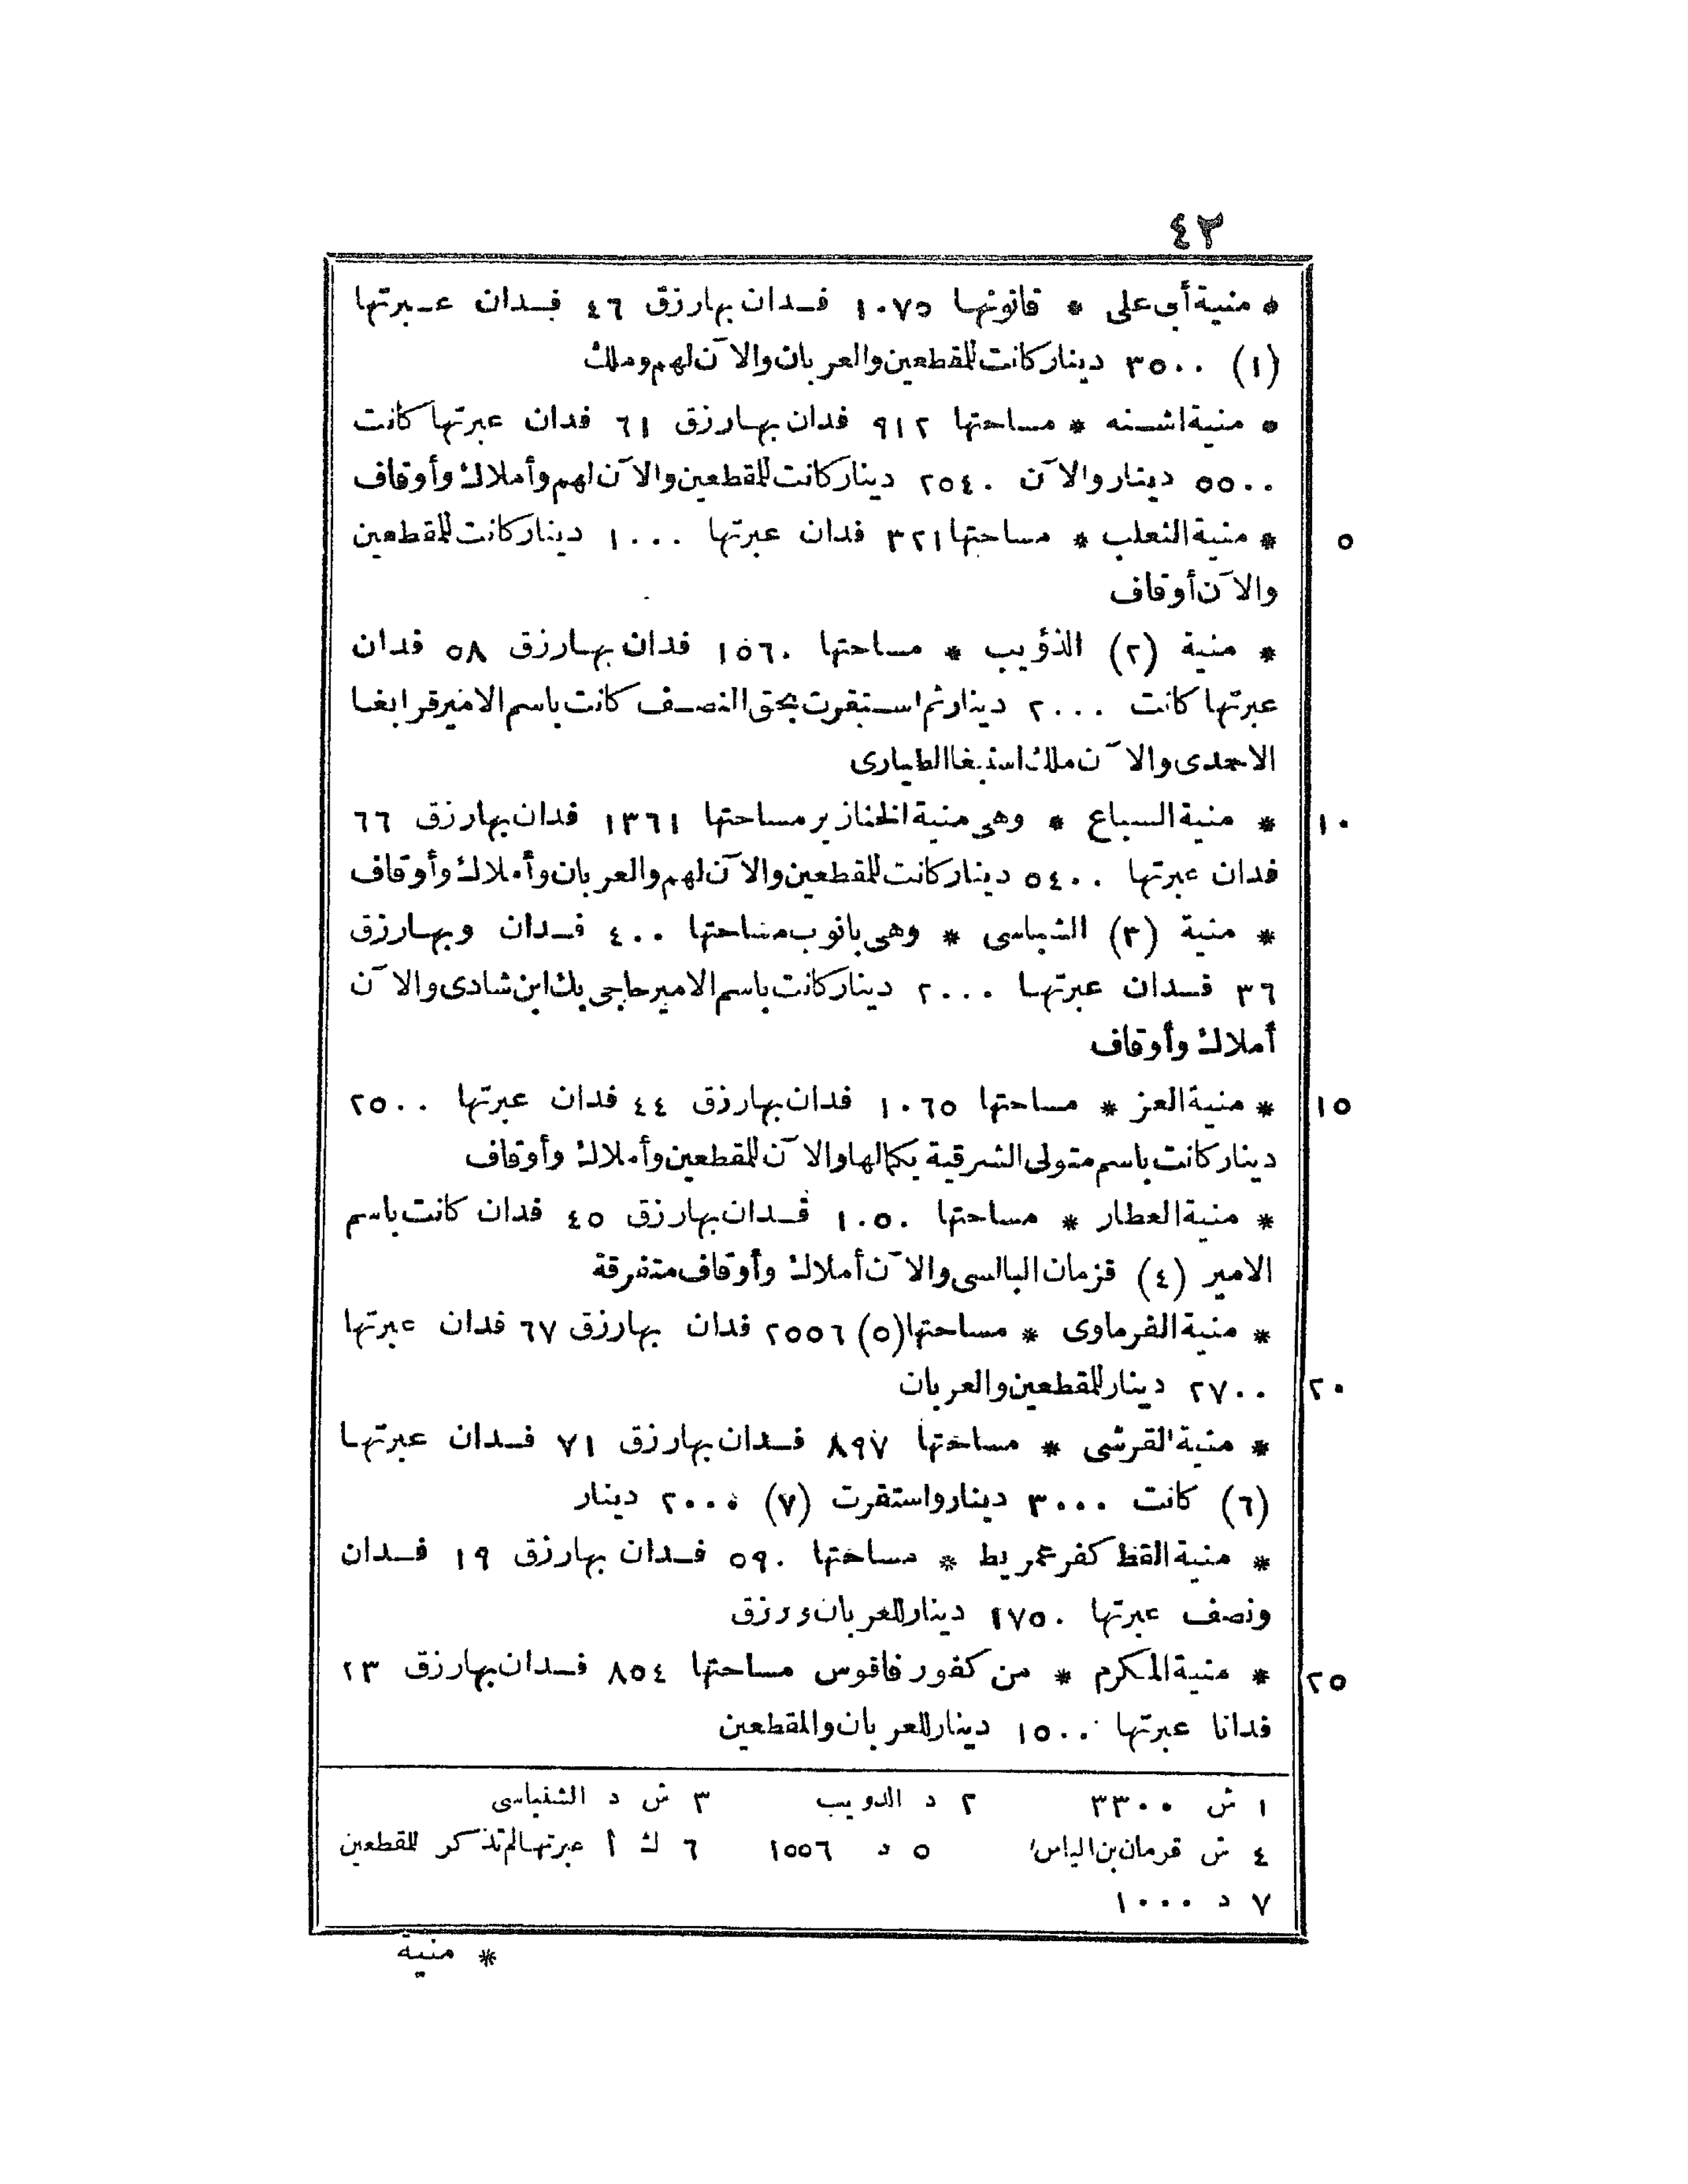 ٤٢
* منية أبى على * قانونها ١٠٧٥ فـدان بها رزق ٤٦ فـدان عـبرتها
(١) ٣٥٠٠ دينار كانت للمقطعين والعربان والآن لهم وملك
* منية اشـنه * مساحتها ٩١٢ فدان بهـا رزق ٦١ فدان عبرتها كانت
٥٥٠٠ دينار والآن ٢٥٤٠ دينار كانت للمقطعين والآن لهم وأملاك وأوقاف
٥ * منية الثعلب * مساحتها ٣٢١ فدان عبرتها ١٠٠٠ دينار كانت للمقطعين
والآن أوقاف
* منية (٢) الذؤيب * مساحتها ١٥٦٠ فدان بهـا رزق ٥٨ فدان
عبرتها كانت ٢٠٠٠ دينار ثم اسـتقرت بحق النصـف كانت باسم الامير قرابغا
الاحمدى والآن ملك اسنبغا الطيارى
١٠ * منية السباع * وهى منية الخنازير مساحتها ١٣٦١ فدان بها رزق ٦٦
فدان عبرتها ٥٤٠٠ دينار كانت للمقطعين والآن لهم والعربان وأملاك وأوقاف
* منية (٣) الشباسى * وهى بانوب مساحتها ٤٠٠ فـدان وبهـا رزق
٣٦ فـدان عبرتهـا ٢٠٠٠ دينار كانت باسم الامير حاجى بك ابن شادى والآن
أملاك وأوقاف
١٥ * منية العز * مساحتها ١٠٦٥ فدان بها رزق ٤٤ فدان عبرتها ٢٥٠٠
دينار كانت باسم متولى الشرقية بكمالها والآن للمقطعين وأملاك وأوقاف
* منية العطار * مساحتها ١٠٥٠ فـدان بها رزق ٤٥ فدان كانت باسم
الامير (٤) قزمان البالسى والآن أملاك وأوقاف متفرقة
* منية الفرماوى * مساحتها (٥) ٢٥٥٦ فدان بها رزق ٦٧ فدان عبرتها
٢٠ ٢٧٠٠ دينار للمقطعين والعربان
* منية القرشى * مساحتها ٨٩٧ فـدان بها رزق ٧١ فـدان عبرتهـا
(٦) كانت ٣٠٠٠ دينار واستقرت (٧) ٢٠٠٠ دينار
* منية القط كفر عمريط * مساحتها ٥٩٠ فـدان بها رزق ١٩ فـدان
ونصف عبرتها ١٧٥٠ دينار للعربان ورزق
٢٥ * منية المكرم * من كفور فاقوس مساحتها ٨٥٤ فـدان بها رزق ٢٣
فدانا عبرتها ١٥٠٠ دينار للعربان والمقطعين
١ ش ٣٣٠٠ ٢ د الدويب ٣ ش د الشنباسى
٤ ش قرمان بن الياس ٥ د ١٥٥٦ ٦ ك أ عبرتها لم تذكر للمقطعين
٧ د ١٠٠٠
* منية